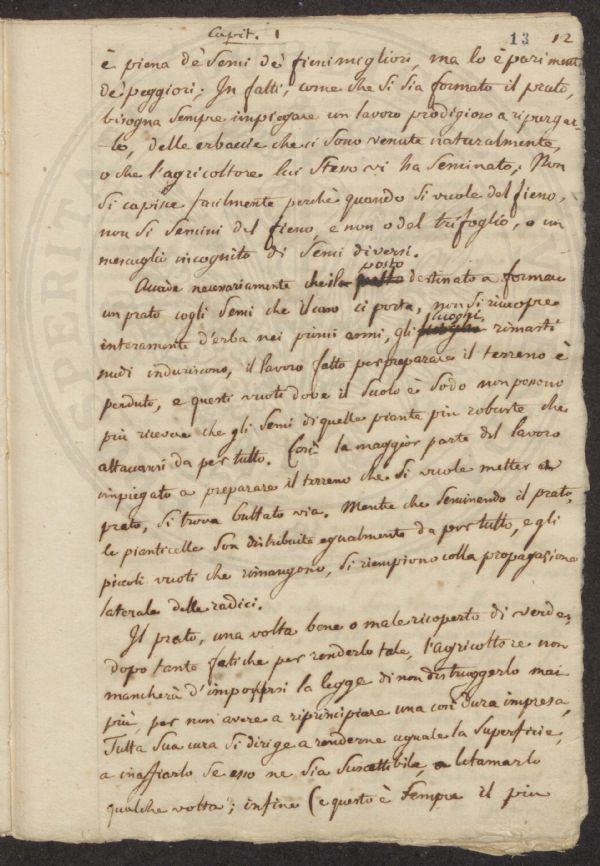 Capit. 1
13 12
è piena de Semi de fieni migliori, ma lo è pariment
de peggiori; In fatti, come che si sia formato il prato,
bisogna sempre impiegare un lavoro prodigioso a ripurgar-
-lo, delle erbaccie che ci sono venute naturalmente,
o che l'agricoltore lui stesso vi ha seminato; Non
si capisce facilmente perchè quando si vuole del fieno,
non si semini del fieno, e non o del trifoglio, o un
mescuglio incognito di Semi diversi.
posto
Accade necessariamente che il destinato a formare
un prato cogli Semi che il caso ci porta, non si ricuopre
luoghi
interamente d'erba nei primi anni, gli rimasti
nudi induriscono, il lavoro fatto per preparare il terreno è
perduto, e questi vuoti dove il suolo è sodo non possono
più ricevere che gli Semi di quelle piante più robuste che
attaccansi da per tutto. Così la maggior parte del lavoro
impiegato a preparare il terreno che si vuole metter a
prato, si trova buttato via. Mentre che seminendo il prato,
le pianticelle son distribuite egualmente da per tutto, e gli
piccoli vuoti che rimangono, si riempiono colla propagazione
laterale delle radici.
Il prato, una volta bene o male ricoperto di verde,
dopo tante fatiche per renderlo tale, l'agricoltore non
mancherà d'imporsi la legge di non distruggerlo mai
più, per non avere a riprincipiare una così dura impresa,
Tutta sua cura si dirige a renderne uguale la superficie,
a inaffiarlo se esso ne sia suscettibile, a letamarlo
qualche volta; infine (e questo è sempre il più